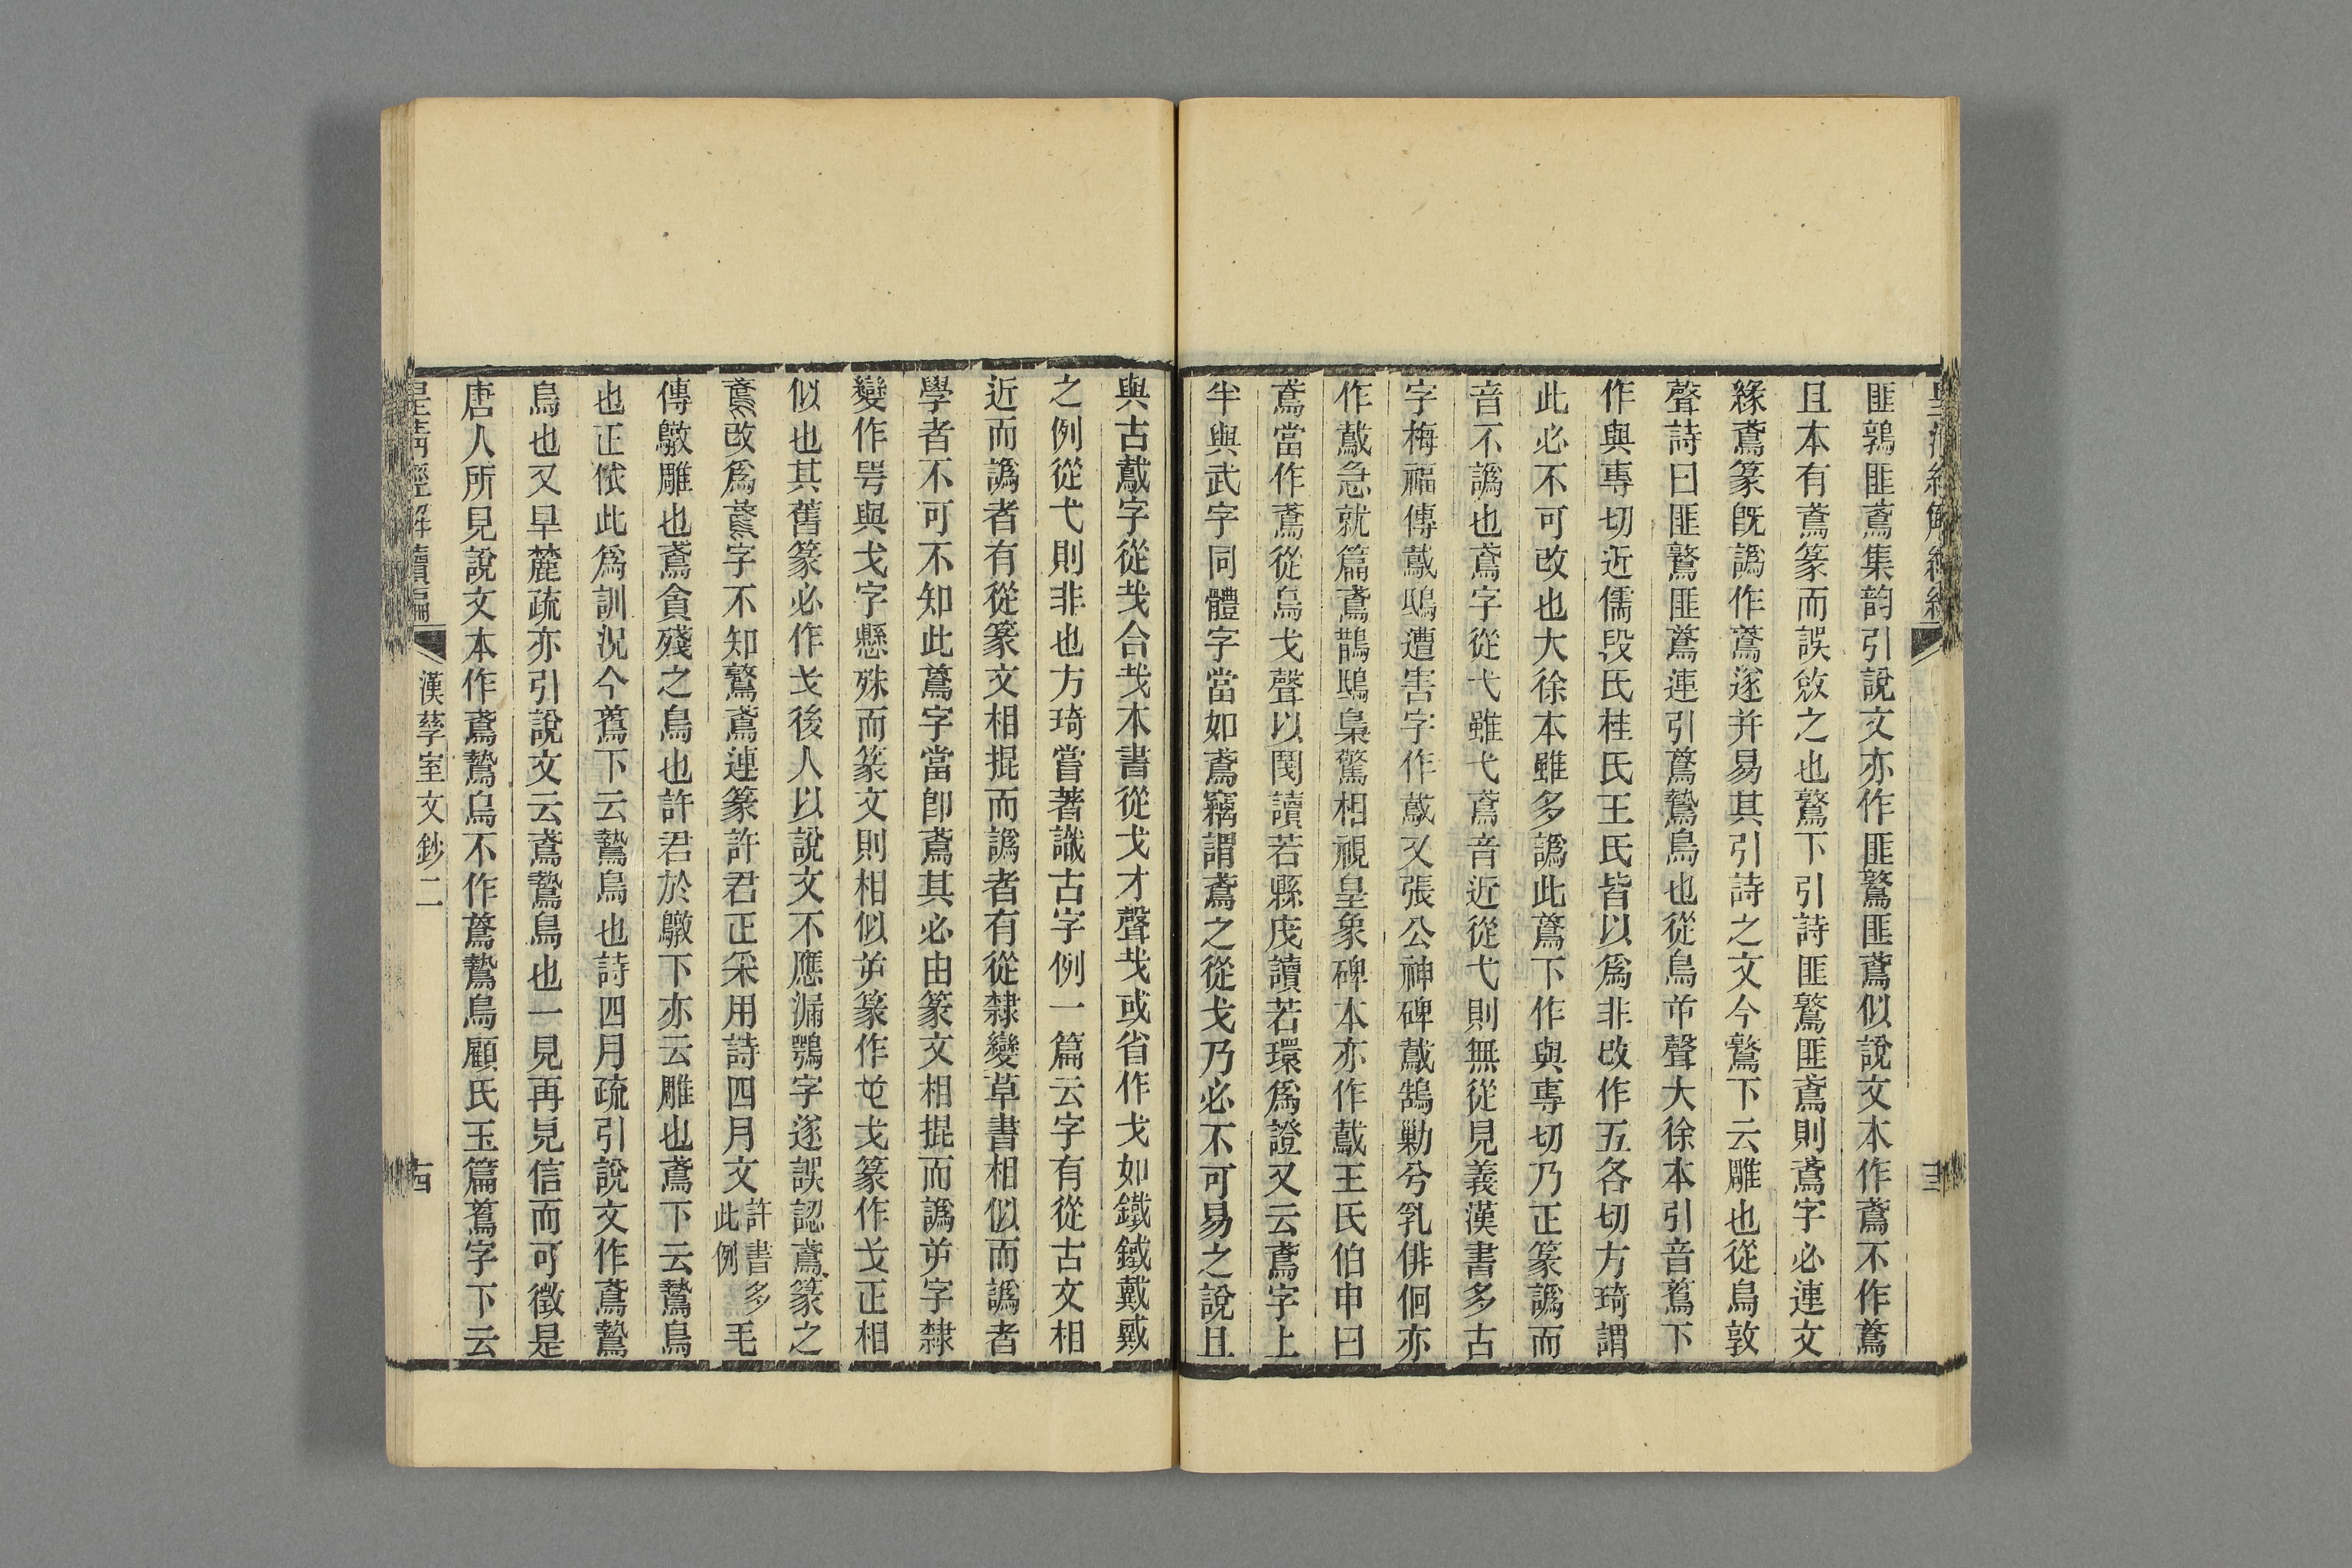 匪鶉匪鳶集韵引說文亦作匪鷻匪鳶似說文本作鳶不作䳒
且本有鳶篆而誤敓之也鷻下引詩匪鷻匪鳶則鳶字必連文
緣鳶篆旣譌作䳒遂并易其引詩之文今鷻下云雕也從鳥敦
聲詩曰匪鷻匪䳒連引䳒鷙鳥也從鳥屰聲大徐本引音䳒下
作與專切近儒段氏桂氏王氏皆以爲非改作五各切方琦謂
此必不可改也大徐本雖多譌此䳒下作與專切乃正篆譌而
音不譌也鳶字從弋雖弋鳶音近從弋則無從見義漢書多古
字梅福傳䳒鵄遭害字作䳒又張公神碑䳒鵠勦兮乳俳佪亦
作䳒急就篇鳶鵲鴟梟驚相視皇象碑本亦作䳒王氏伯申曰
鳶當作鳶從鳥戈聲以閔讀若縣戌讀若環爲證又云鳶字上
半與武字同體字當如鳶竊謂鳶之從戈乃必不可易之說且
與古䳒字從𢦏合𢦏本書從戈才聲𢦏或省作戈如鐵䥫戴戴
之例從弋則非也方琦嘗著識古字例一篇云字有從古文相
近而譌者有從篆文相掍而譌者有從隸變草書相似而譌者
學者不可不知此䳒字當卽鳶其必由篆文相掍而譌屰字隸
變作咢與戈字懸殊而篆文則相似屰篆作屰戈篆作戈正相
似也其舊篆必作戈後人以說文不應漏鶚字遂誤認鳶篆之
鳶改爲䳒字不知鷻鳶連篆許君正采用詩四月文許書多此例毛
傳鷻雕也鳶貪殘之鳥也許君於鷻下亦云雕也鳶下云鷙鳥
也正依此爲訓況今䳒下云鷙鳥也詩四月疏引說文作鳶鷙
鳥也又旱麓疏亦引說文云鳶鷙鳥也一見再見信而可徵是
唐人所見說文本作鳶鷙鳥不作䳒鷙鳥顧氏玉篇䳒字下云
皇清經解續編 漢孳室文鈔二 古